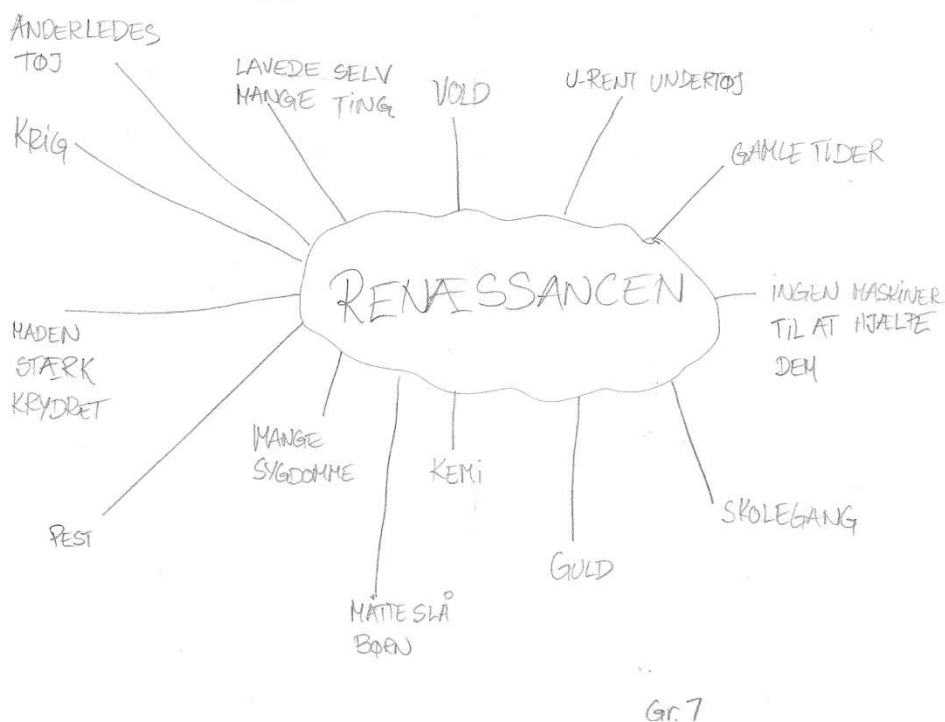 ANDERLEDES
TØJ
LAVEDE SELV
MANGE TING
VOLD
U-RENT UNDERTØJ
KRIG
GAMLE TIDER
RENÆSSANCEN
INGEN MASKINER
TIL AT HJÆLPE
DEM
MADEN
STÆRK
KRYDRET
MANGE
SYGDOMME
KEMI
SKOLEGANG
PEST
GULD
MÅTTE SLÅ
BØRN
Gr. 7